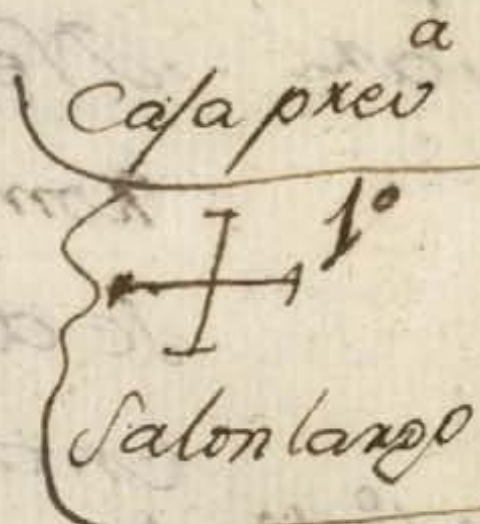 Casa prev^a
1º
Salon largo